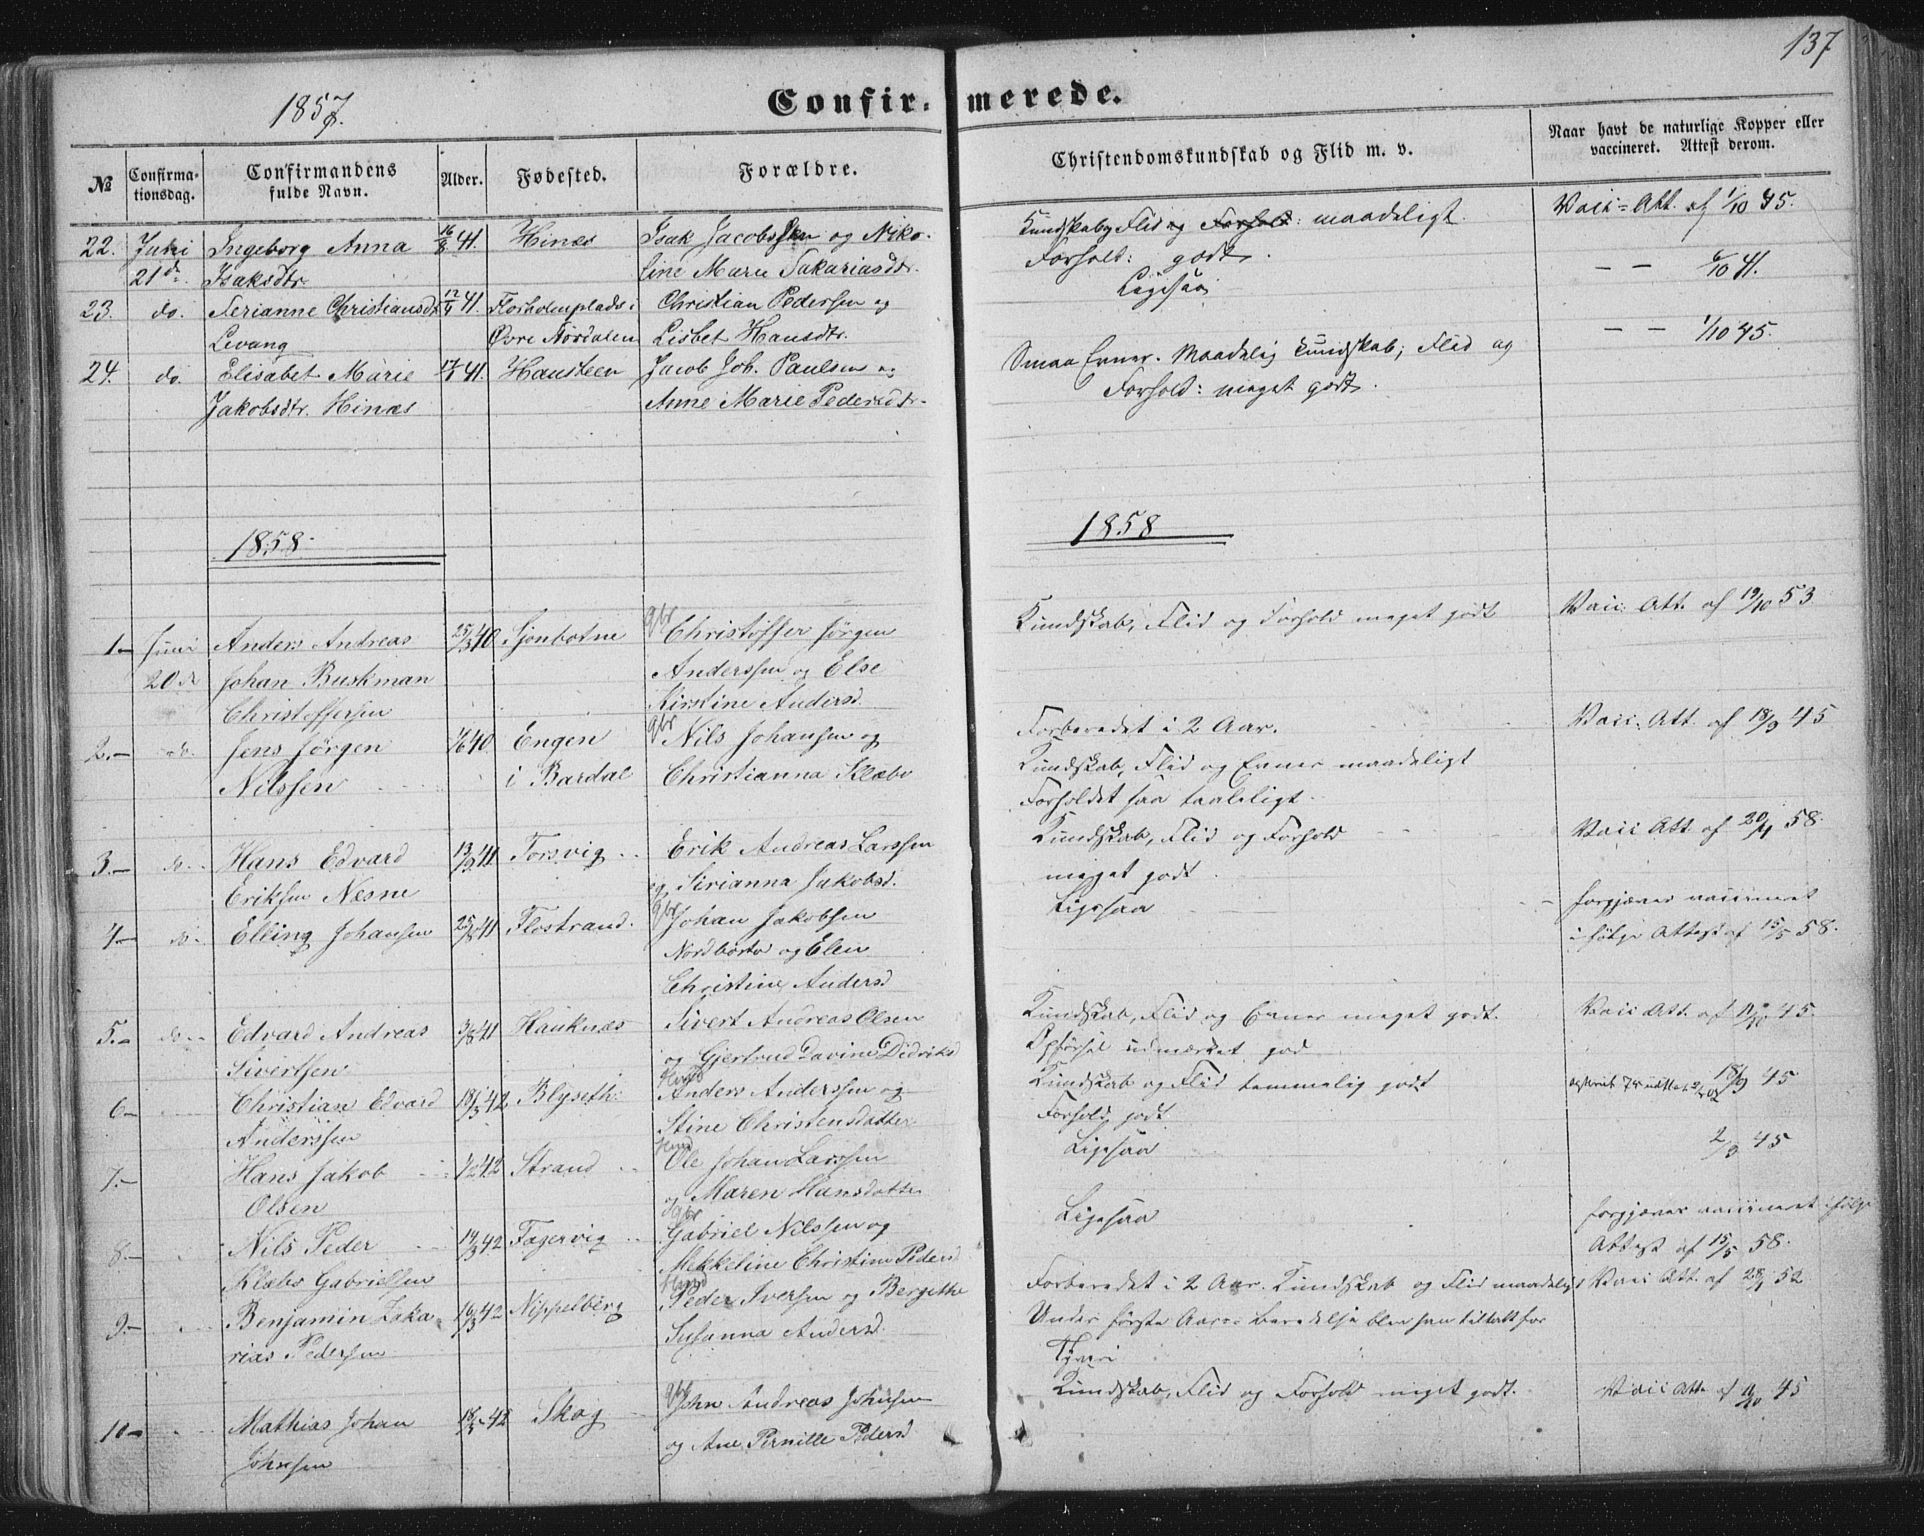 137
1857.
Confirmerede.
№
Confirmationsdag.
Confirmandens fulde Navn.
Alder.
Fødested.
Forældre.
Christendomskundskab og Flid m. v.
Naar havt de naturlige Kopper eller vaccineret. Attest derom.
22. Juni Ingeborg Anna 16/8 41. Hinæs Isak Jacobssen og Niko-
21de Isaksdtr. line Marie Sakariasdtr.
Kundskab, Flid og Forhold: maadeligt.
Forholt: godt.
Vacc-Att. af 1/10 45.
23. do. Serianne Christiansdtr. 12/9 41. Florholmplads i Christian Pedersen og
Levang Øvre Nordalen Lisbet Hansdtr.
Ligesaa
— — 6/10 41.
24. do. Elisabet Marie 17/1 41. Hausteen Jacob Joh. Paulsen og
Jakobsdtr. Hinæs Anne Marie Pedersdtr.
Smaa Evner. Maadelig Kundskab; Flid og
Forholt: meget godt.
— — 1/10 45.
1858.
1858
1.— Juni Anders Andreas 25/3 40 Sjonbotne gbr Christoffer Jørgen
20de Johan Buskman Anderssen og Else
Christoffersen Kirstine Andersd.
Kundskab, Flid og Forhold meget godt
Vacc. Att. af 19/10 53
2.— do. Jens Jørgen 7/6 40. Engen gbr Nils Johansen og
Nilssen i Bardal Christianna Klæbo
Forberedet i 2 Aar.
Kundskab, Flid og Evner maadeligt
Forholdet saa taaleligt.
Vacc. Att. af 18/9 45
3.— do. Hans Edvard 13/9 41 Torsvig Erik Andreas Larssen
Eriksen Nesne og Sirianna Jakobsd.
Kundskab, Flid og Forhold
meget godt.
Vacc Att. af 20/4 58.
4.— do. Elling Johansen 25/8 41 Flostrand. gbr Johan Jakobsen
Nordbotn og Elen
Christine Andersd
Ligesaa
forgjæves vaccineret
i følge Attest af 15/5 58.
5.— do. Edvard Andreas 3/8 41 Hauknæs Sivert Andreas Olsen
Sivertsen og Gjertrud Davina Didriksd
Kundskab, Flid og Evner meget godt.
Opførsel udmærket god
Vacc Att. af 11/10 45.
6— Christian Edvard 18/3 42 Blyseth. Huusmd Anders Anderssen og
Anderssen Stine Christensdatter
Kundskab og Flid temmelig godt
Forhold godt.
18/9 45
7.— Hans Jakob 1/2 42 Strand Ole Johan Larssen
Olsen og Maren Hansdatter
Ligesaa
2/9 45
8.— Nils Peder 19/3 42 Fagervig gbr Gabriel Nilssen og
Klæbo Gabrielsen Mekkeline Christine Pedersd
Ligesaa
forgjæves vaccineret i følge
Attest af 15/5 58.
9.— Benjamin Zaka- 16/3 42 Nippelberg Peder Iversen og Bergithe
rias Pedersen Susanna Andersd.
Forberedet i 2 Aar. Kundskab og Flid maadeligt
Under første Aars Beredelse blev han tiltalt for
Tyveri
Vacc Att. af 28/1 52
10— Mathias Johan 42 Skog gbr John Andreas Johnsen
Johnsen og Ane Pernille Pedersd
Kundskab, Flid og Forhold meget godt.
Vacc Att. af 11/10 45